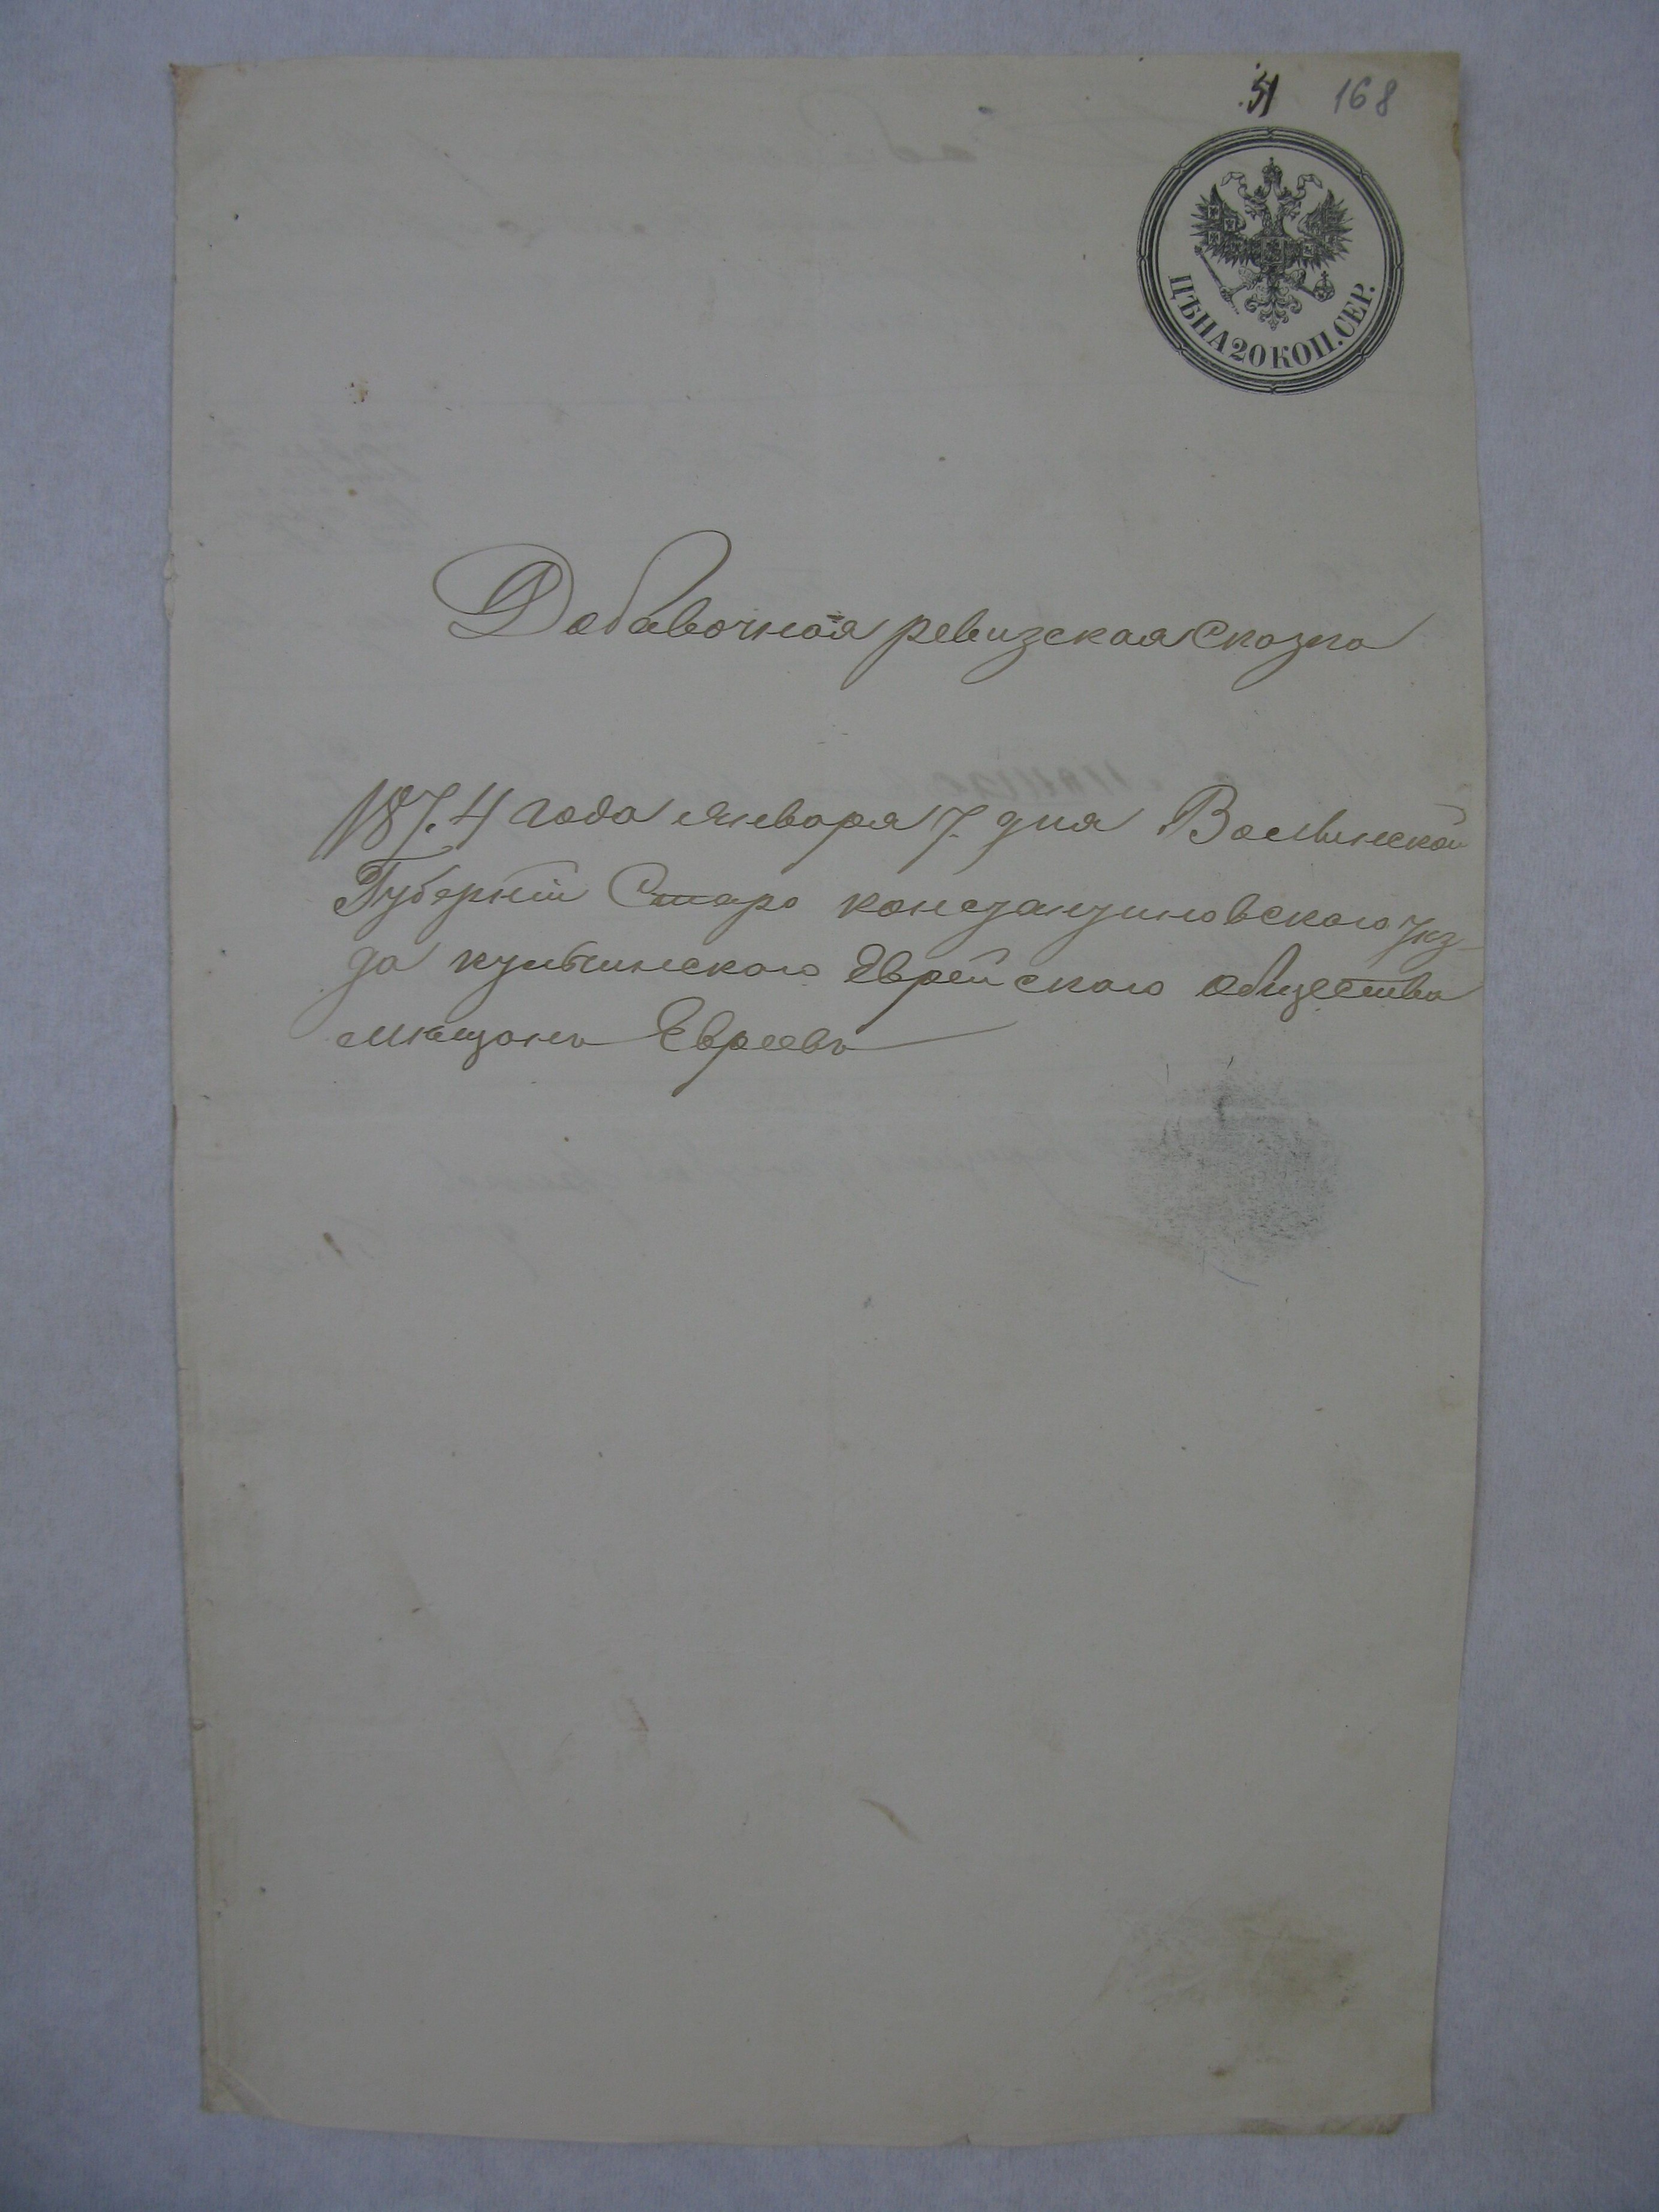 51 168
ЦѢНА 20 КОП. СЕР.
Добавочная ревизская Сказка
187.4 года января 7. дня Волынской
Губерніи Старо константиновского уѣз-
да кульчинского Еврейского общества
мѣщанъ Евреевъ